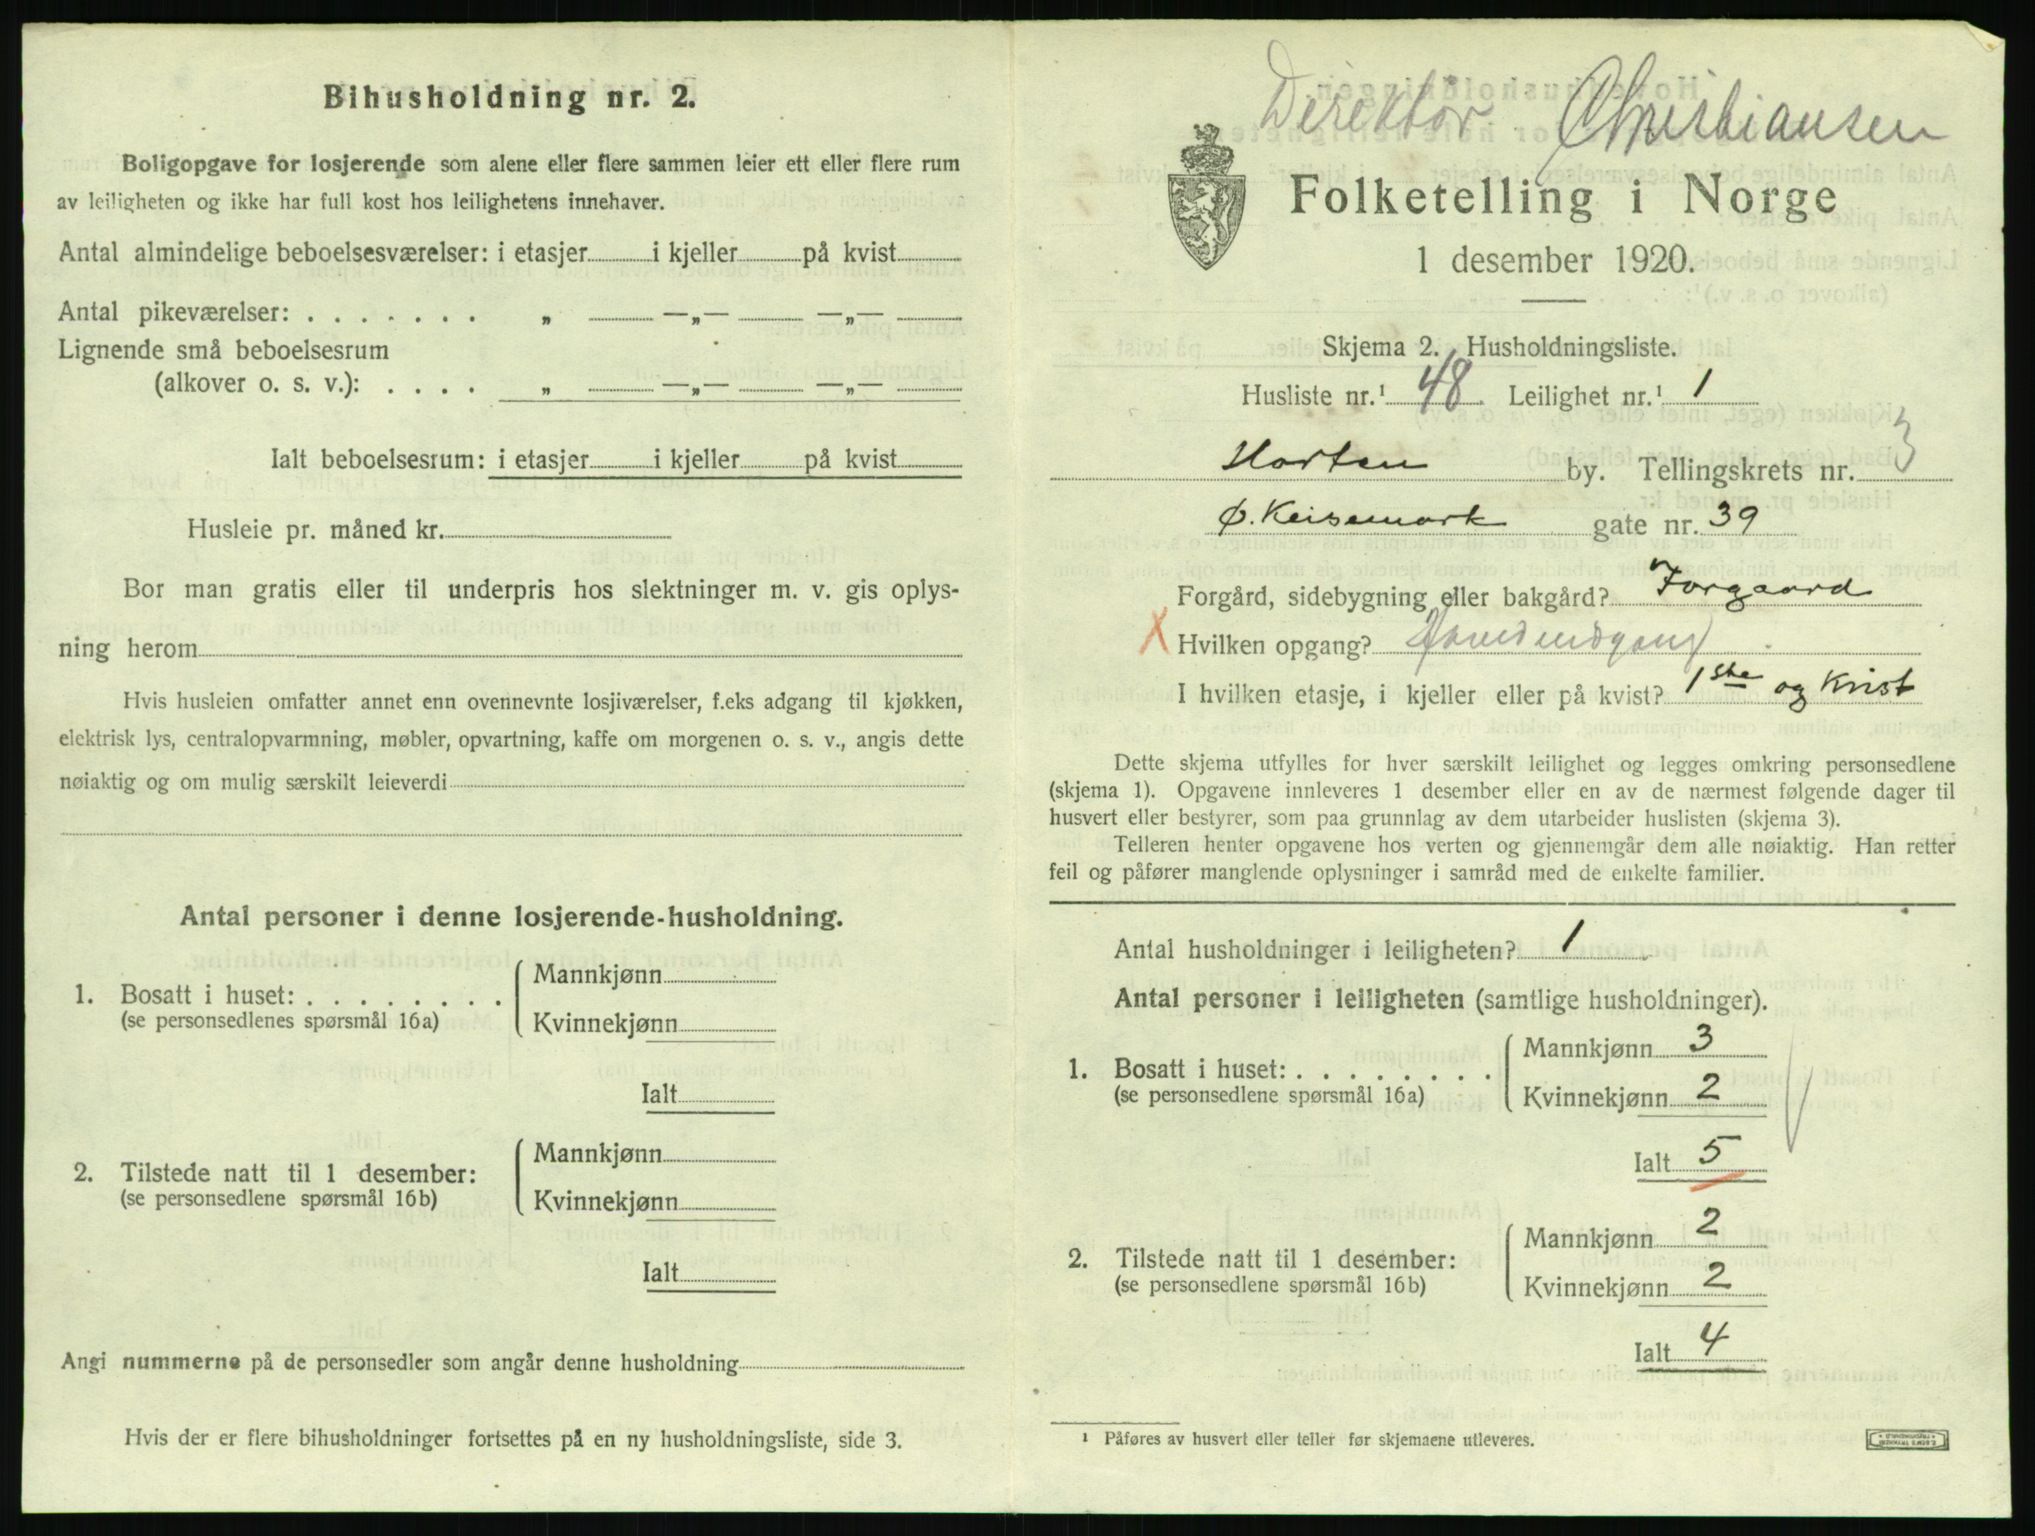 Bihusholdning nr. 2.
Boligopgave for losjerende som alene eller flere sammen leier ett eller flere rum
av leiligheten og ikke har full kost hos leilighetens innehaver.
Antal almindelige beboelsesværelser: i etasjer i kjeller på kvist
Antal pikeværelser: . . . . . . . „ —„— —„—
Lignende små beboelsesrum
(alkover o. s. v.): . . . . „ —„— —„—
Ialt beboelsesrum: i etasjer i kjeller på kvist
Husleie pr. måned kr.
Bor man gratis eller til underpris hos slektninger m. v. gis oplys-
ning herom
Hvis husleien omfatter annet enn ovennevnte losjiværelser, f.eks adgang til kjøkken,
elektrisk lys, centralopvarmning, møbler, opvartning, kaffe om morgenen o. s. v., angis dette
nøiaktig og om mulig særskilt leieverdi
Antal personer i denne losjerende-husholdning.
1. Bosatt i huset: . . . . . . . . Mannkjønn
(se personsedlenes spørsmål 16a) Kvinnekjønn
Ialt
2. Tilstede natt til 1 desember: Mannkjønn
(se personsedlene spørsmål 16b) Kvinnekjønn
Ialt
Angi nummerne på de personsedler som angår denne husholdning
Hvis der er flere bihusholdninger fortsettes på en ny husholdningsliste, side 3.
Direktør Christiansen
Folketelling i Norge
1 desember 1920.
Skjema 2. Husholdningsliste.
Husliste nr.¹ 48 Leilighet nr.¹ 1
Horten by. Tellingskrets nr. 3
Ø. Keisemark gate nr. 39
Forgård, sidebygning eller bakgård? Forgaard
X Hvilken opgang? Hovedindgang
I hvilken etasje, i kjeller eller på kvist? 1ste og Kvist
Dette skjema utfylles for hver særskilt leilighet og legges omkring personsedlene
(skjema 1). Opgavene innleveres 1 desember eller en av de nærmest følgende dager til
husvert eller bestyrer, som paa grunnlag av dem utarbeider huslisten (skjema 3).
Telleren henter opgavene hos verten og gjennemgår dem alle nøiaktig. Han retter
feil og påfører manglende oplysninger i samråd med de enkelte familier.
Antal husholdninger i leiligheten? 1
Antal personer i leiligheten (samtlige husholdninger).
1. Bosatt i huset: . . . . . . . . Mannkjønn 3
(se personsedlene spørsmål 16a) Kvinnekjønn 2
Ialt 5
2. Tilstede natt til 1 desember: Mannkjønn 2
(se personsedlene spørsmål 16b) Kvinnekjønn 2
Ialt 4
¹ Påføres av husvert eller teller før skjemaene utleveres.